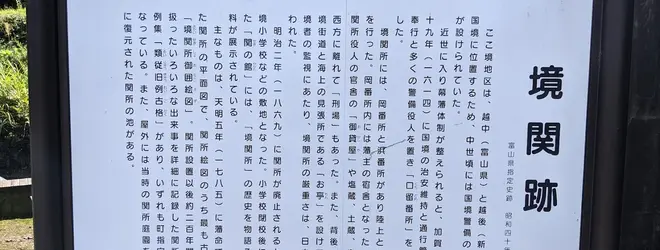 境関跡
富山県指定史跡 昭和四十
ここ境地区は、越中（富山県）と越後（新
国境に位置するため、中世頃には国境警備の
が設けられていた。
近世に入り幕藩体制が整えられると、加賀
十九年（一六一四）に国境の治安維持と通行
奉行と多くの警備役人を置き「口留番所」を
した。
境関所には、岡番所と浜番所があり陸上と
を行った。岡番所内には藩主の宿舎となった
関所役人の官舎の「御貸屋」や塩蔵、土蔵、
西方に離れて「刑場」もあった。また、背後
境街道と海上の見張所である「お亭」を設け
境者の監視にあたり、境関所の厳重さは、日
われた。
明治二年（一八六九）に関所が廃止される
境小学校などの敷地となった。小学校閉校後
た「関の館」には、「境関所」の歴史を物語る
料が展示されている。
主なものは、天明五年（一七八五）に藩命で
た関所の平面図で、関所絵図のうち最も古
「境関所御囲絵図」。関所設置以後約二百年間
扱ったいろいろな出来事を詳細に記録した関所
例集「類従旧例古格」があり、いずれも町指定
なっている。また、屋外には当時の関所庭園を
に復元された関所の池がある。